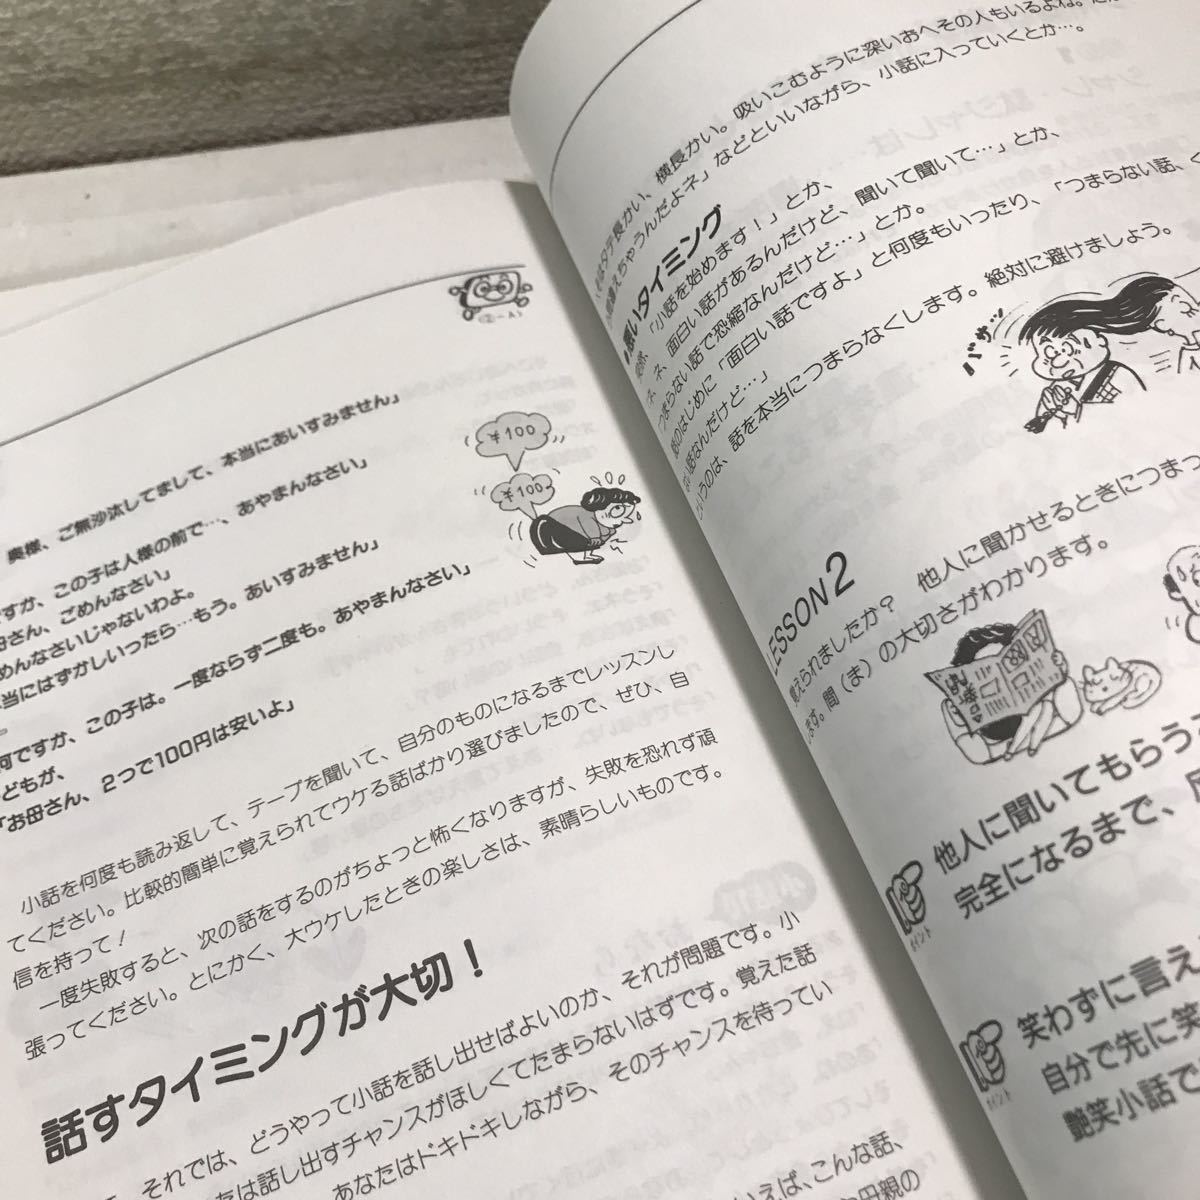 (2-A)
奥様、ご無沙汰してまして、本当にあいすみません」
ですが、この子は人様の前で…、あやまんなさい」
母さん、ごめんなさい」
めんなさいじゃないわよ。
当にはずかしいったら…もう。あいすみません」
何ですか、この子は。一度ならず二度も。あやまんなさい」
どもが、
「お母さん、2つで100円は安いよ」
¥100
¥100
小話を何度も読み返して、テープを聞いて、自分のものになるまでレッスンし
てください。比較的簡単に覚えられてウケる話ばかり選びましたので、ぜひ、自
信を持って！
一度失敗すると、次の話をするのがちょっと怖くなりますが、失敗を恐れず頑
張ってください。とにかく、大ウケしたときの楽しさは、素晴らしいものです。
話すタイミングが大切！
それでは、どうやって小話を話し出せばよいのか、それが問題です。小
は話し出すチャンスがほしくてたまらないはずです。覚えた話
あなたはドキドキしながら、そのチャンスを待ってい
いえば、こんな話、
母親の
吸いこむように深いおへその人もいるよね。
長かい、横長かい。
違えちゃうんだよネ」などといいながら、小話に入っていくとか…。
●悪いタイミング
「小話を始めます！」とか、
ネ、面白い話があるんだけど、聞いて聞いて…」とか、
つまらない話で恐縮なんだけど…」とか。
話のはじめに「面白い話ですよ」と何度もいったり、「つまらない話、く
ない話なんだけど…」
というのは、話を本当につまらなくします。絶対に避けましょう。
バサ…
LESSON 2
覚えられましたか？ 他人に聞かせるときにつまっ
ます。間（ま）の大切さがわかります。
ポイント
他人に聞いてもらう
完全になるまで、
ポイント
笑わずに言え
自分で先に笑
艶笑小話で